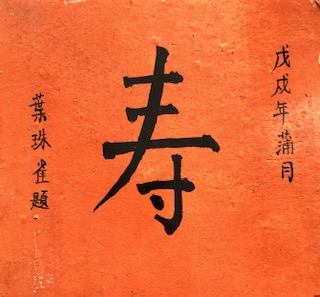 戊戌年蒲月
寿
葉珠雀題